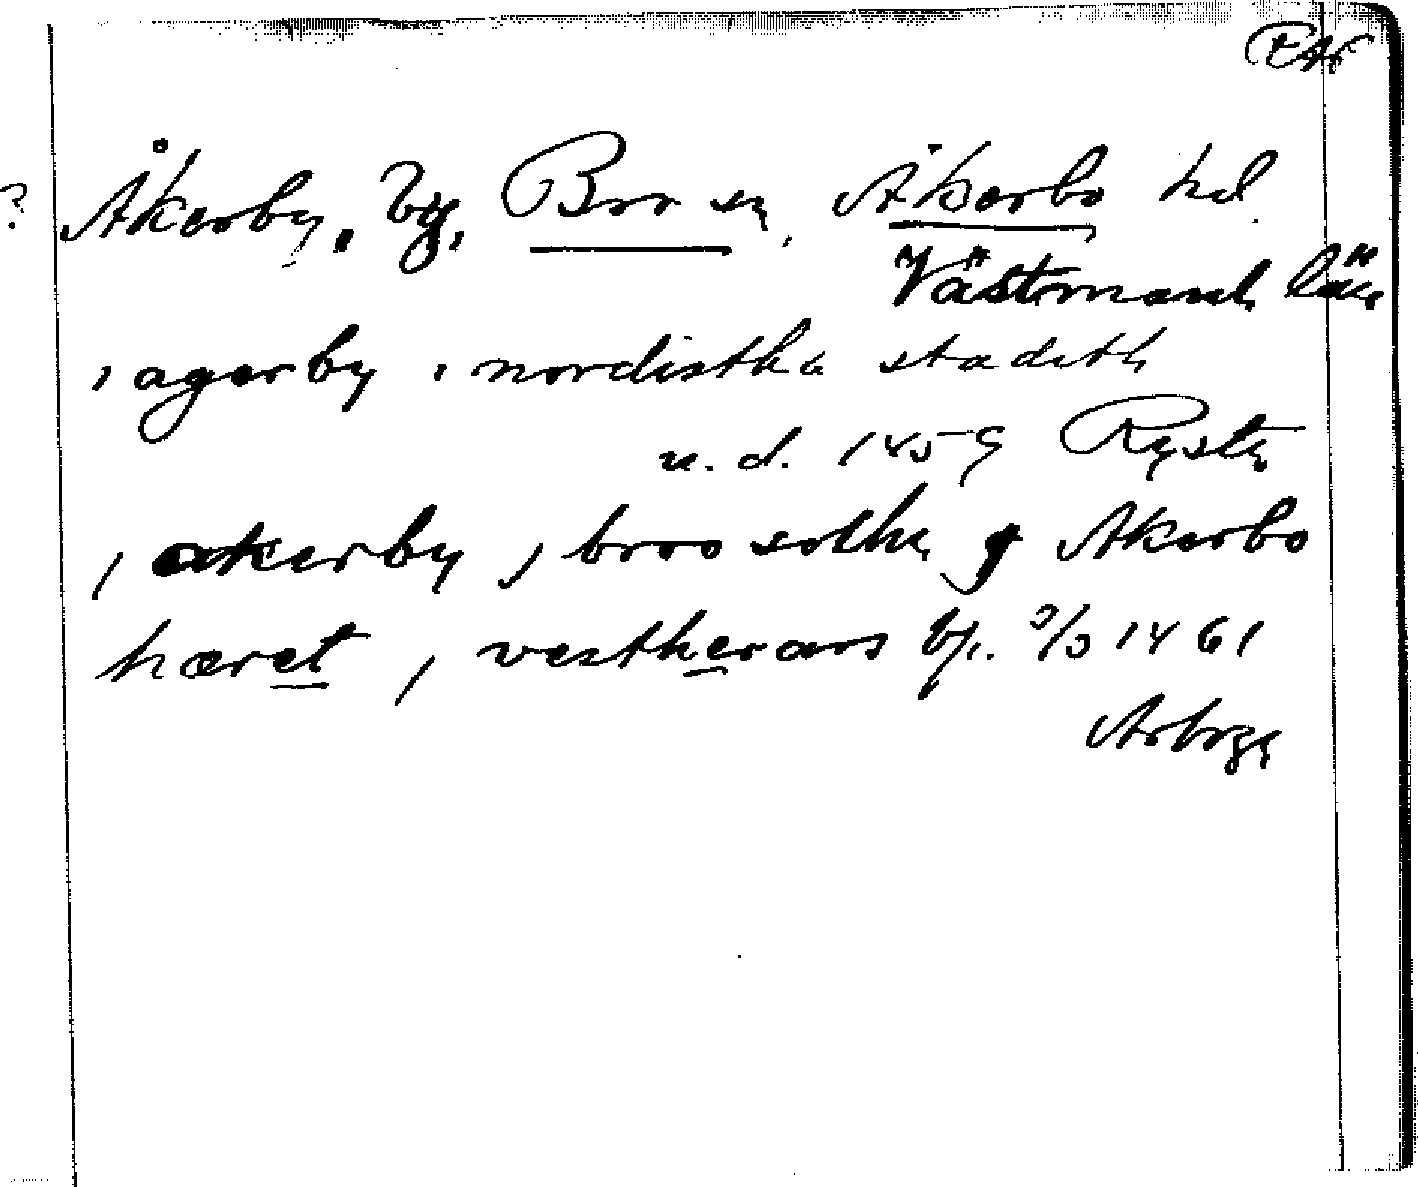 ? Åkerby, by, Bro sn, Åkerbo hd.
Västmanl. län
i agerby i nordistha stadeth
u. d. 1459
i akerby i broo sokhn Akerbo
hæret i vestherars 1461
Arboga